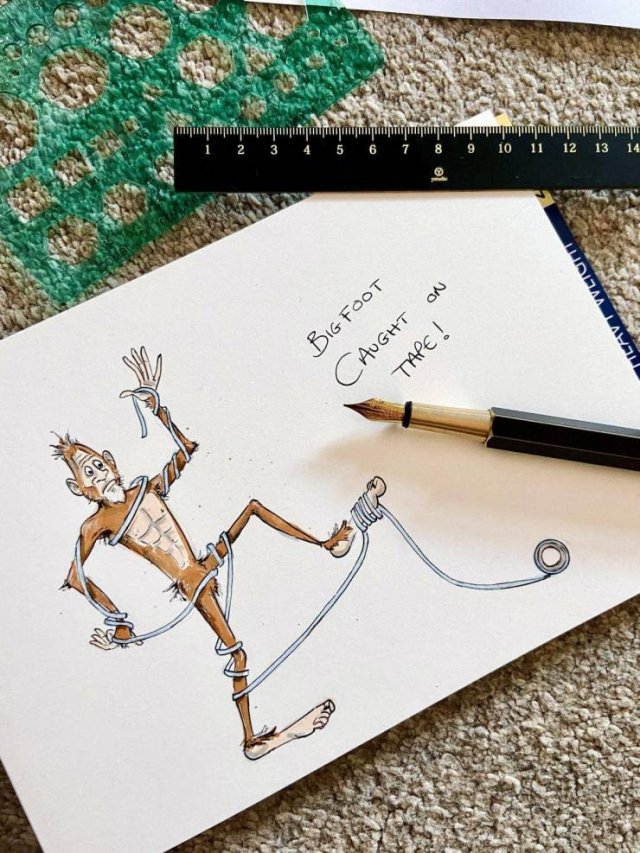 1 2 3 4 5 6 7 8 9 10 11 12 13 14
BIGFOOT
CAUGHT ON
TAPE!
HEAVY WEIGHT